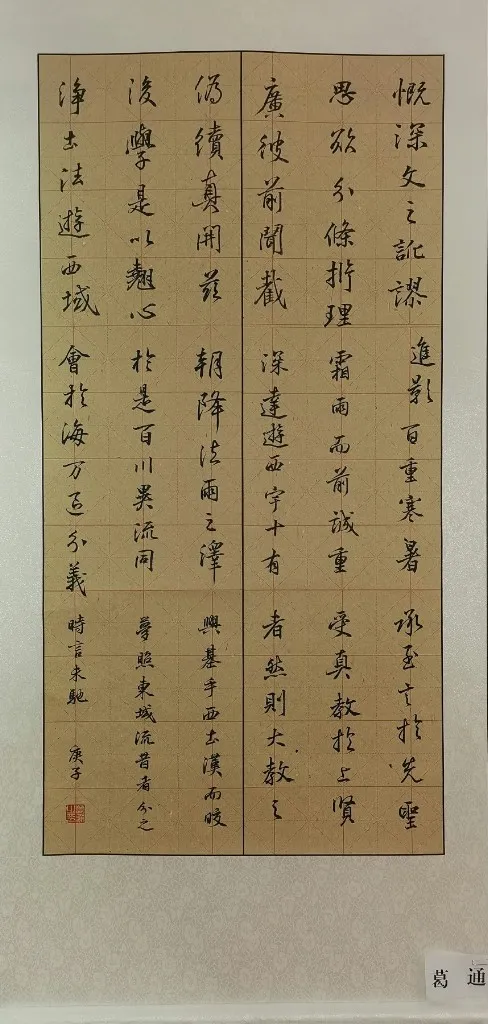 慨深文之訛謬
思欲分條析理
廣彼前聞截
偽續真開茲
後學是以翹心
淨土法遊西域
進影百重寒暑
霜雨而前誠重
深達遊西宇十有
朝降法雨之澤
於是百川異流同
會於海萬區分義
承至言於先聖
受真教於上賢
者然則大教之
興基乎西土漢而皎
夢照東域流昔者分之
時言未馳
庚子
葛通